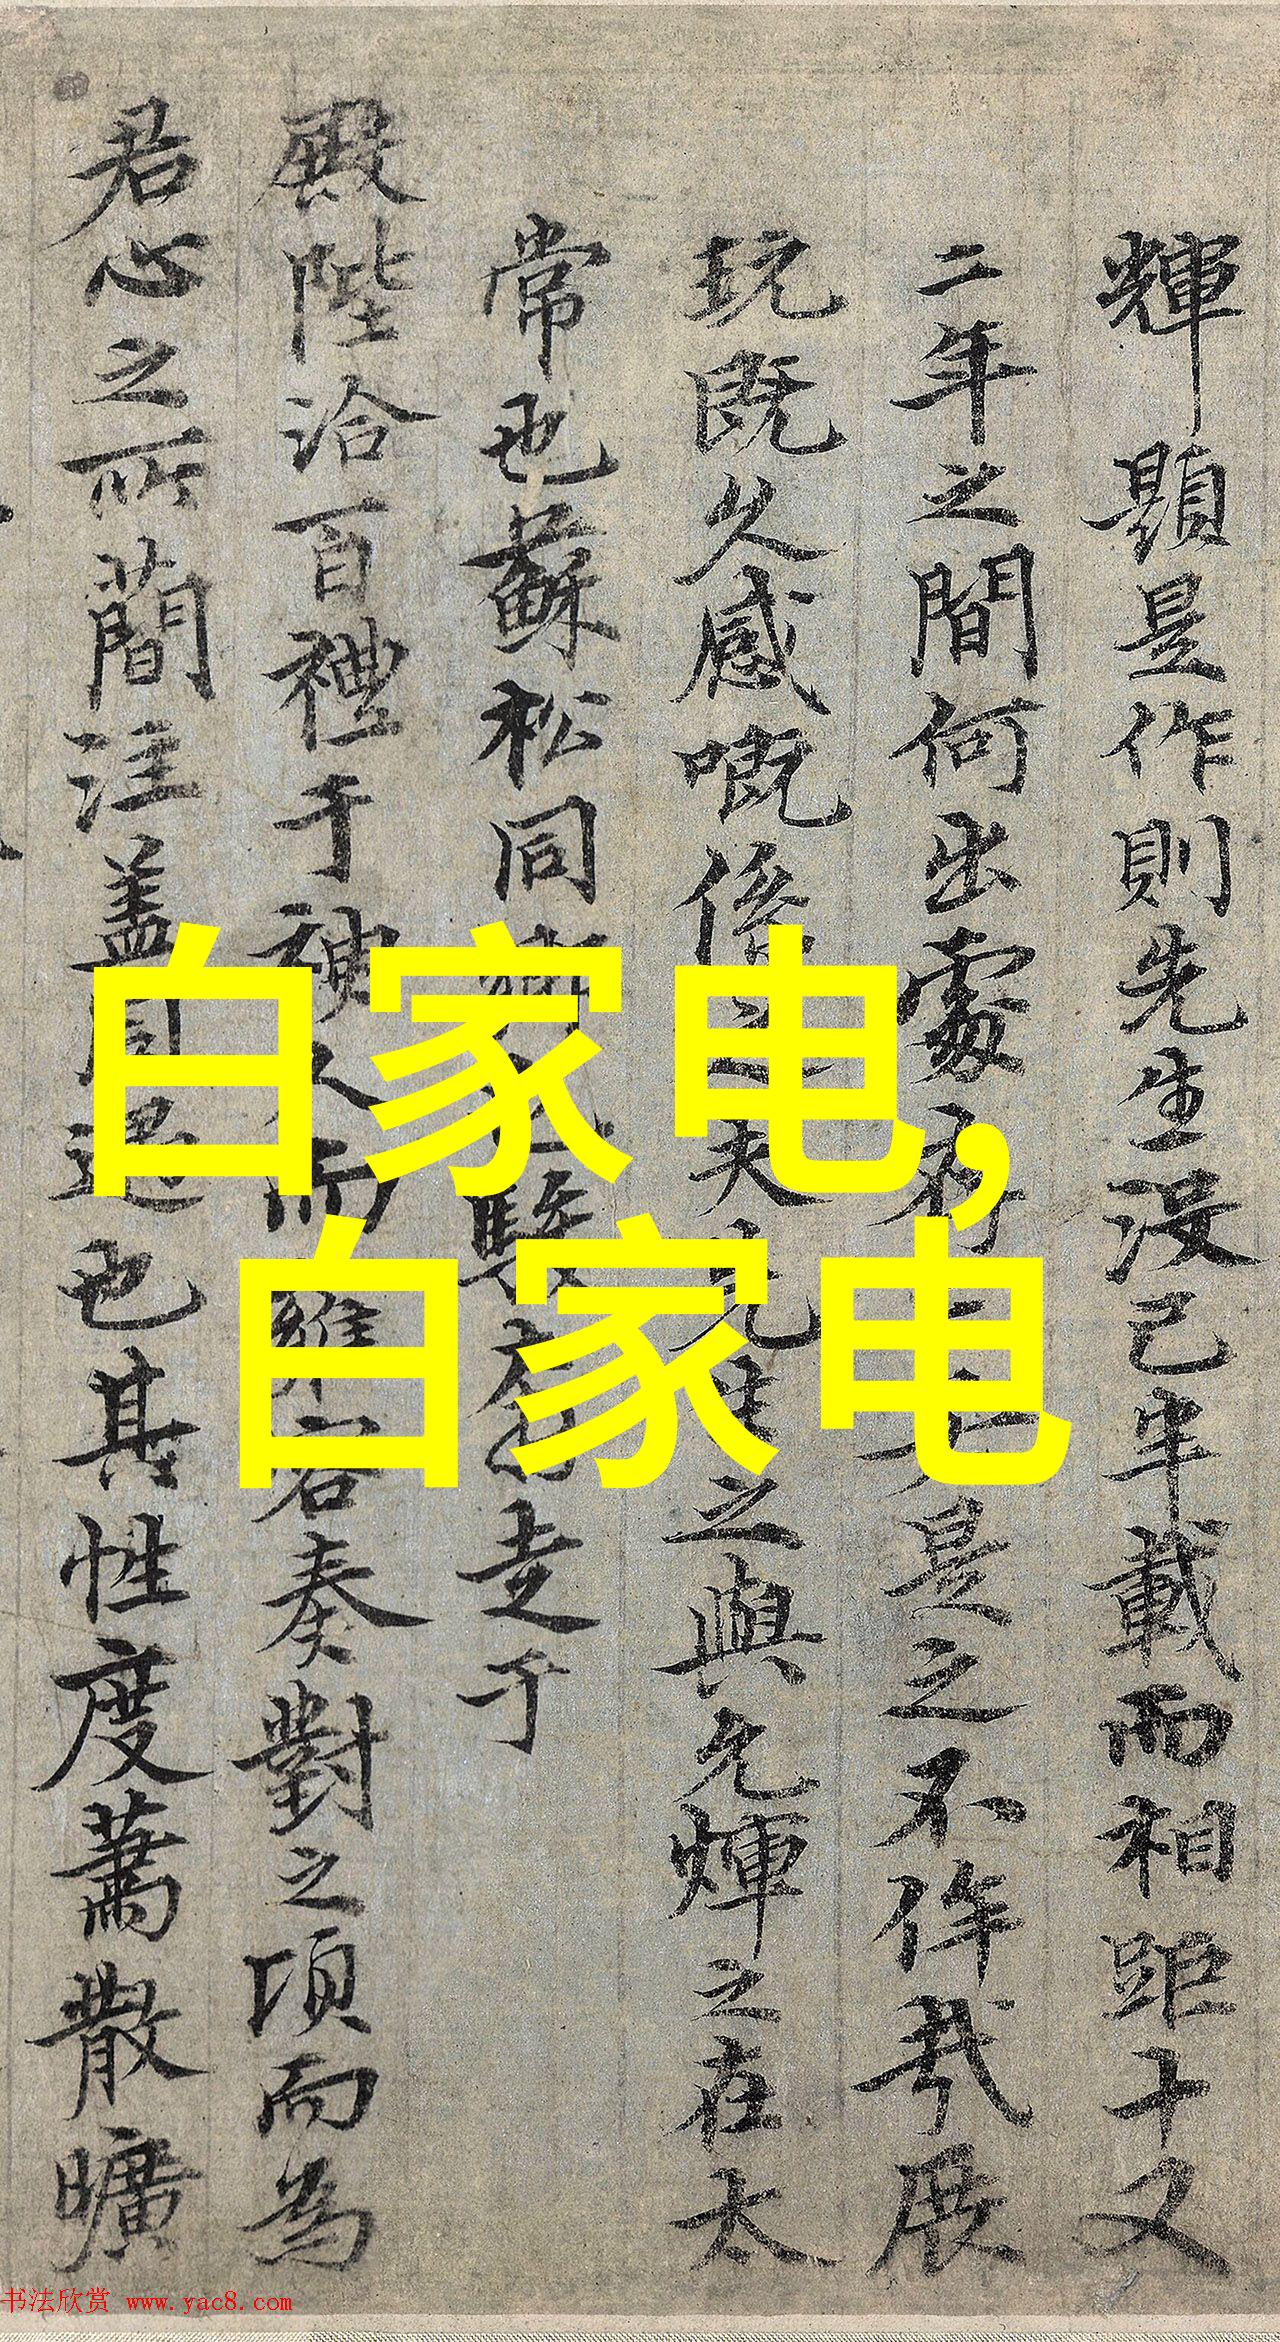 輝題是作則先生没已半載而相距十又
二年之間何出處是之不侔哉展
玩既久感嘅係之夫先生之與允輝之在太
常也蘇松同奔走于
殿陛洽百禮于神人而容奏對之頃而為
君心之所簡注盖同也其性度蕭散曠
白家电,
白家电
书法欣赏 www.yac8.com